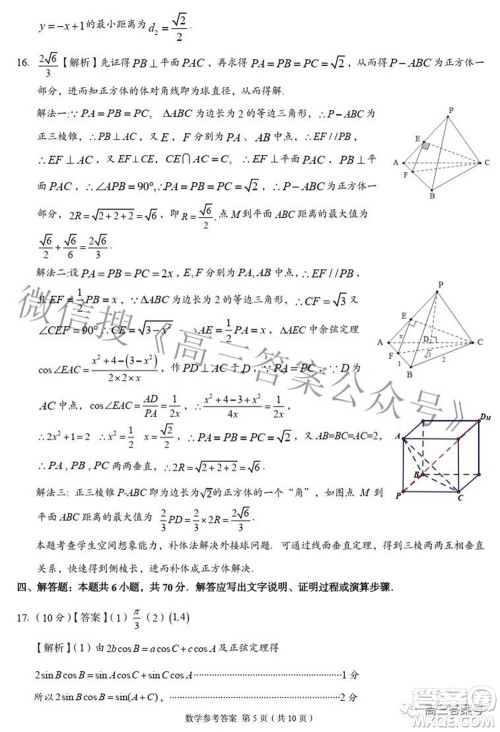 y=-x+1的最小距离为 d₂=√2/2.
16. 2√6/3【解析】先证得 PB⊥平面 PAC，再求得 PA=PB=PC=√2，从而得 P-ABC 为正方体一
部分，进而知正方体的体对角线即为球直径，从而得解.
解法一:∵PA=PB=PC, ΔABC 为边长为 2 的等边三角形，∴P-ABC 为
正三棱锥，∴PB⊥AC，又 E，F 分别为 PA、AB 中点，∴EF//PB，
∴EF⊥AC，又 EF⊥CE, CE∩AC=C，∴EF⊥平面 PAC，PB⊥平
面 PAC，∴∠APB=90°,∴PA=PB=PC=√2，∴P-ABC 为正方体一
部分，2R=√(2+2+2)=√6，即 R=√6/2, 点 M 到平面 ABC 距离的最大值为
√6/2+√6/6=2√6/3.
解法二:设 PA=PB=PC=2x，E,F 分别为 PA,AB 中点，
∴EF//PB，且 EF=1/2PB=x，∵ΔABC 为边长为 2 的等边三角形，∴CF=√3 又
∠CEF=90°∴CE=√(3-x²)，AE=1/2PA=x，ΔAEC 中余弦定理
cos∠EAC=(x²+4-(3-x²))/(2×2×x)，作 PD⊥AC 于 D，∵PA=PC，∵D 为
AC 中点，cos∠EAC=AD/PA=1/2x，∴(x²+4-3+x²)/4x=1/2x,
∴2x²+1=2 ∴x²=1/2 x=√2/2，∴PA=PB=PC=√2，又 AB=BC=AC=2，
∴PA,PB,PC 两两垂直，∴2R=√(2+2+2)=√6，
解法三: 正三棱锥 P-ABC 即为边长为√2的正方体的一个“角”，如图点 M 到
平面 ABC 距离的最大为 2/3PD=2/3×2R=2√6/3.
本题考查学生空间想象能力，补体法解决外接球问题．可通过线面垂直定理，得到三棱两两互相
垂直关系，快速得到侧棱长，进而补体成正方体解决．
四、解答题：本题共 6 小题，共 70 分．解答应写出文字说明、证明过程或演算步骤．
17.（10 分）【答案】（1）π/3（2）(1,4)
【解析】（1）由 2b cos B=a cos C+c cos A 及正弦定理得
2sin B cos B=sin A cos C+sin C cos A ⋯⋯⋯⋯1 分
所以 2sin B cos B=sin(A+C)， ⋯⋯⋯⋯2 分
数学参考答案 第 5 页（共 10 页）
微信搜《高三答案公众号》
高三答案号